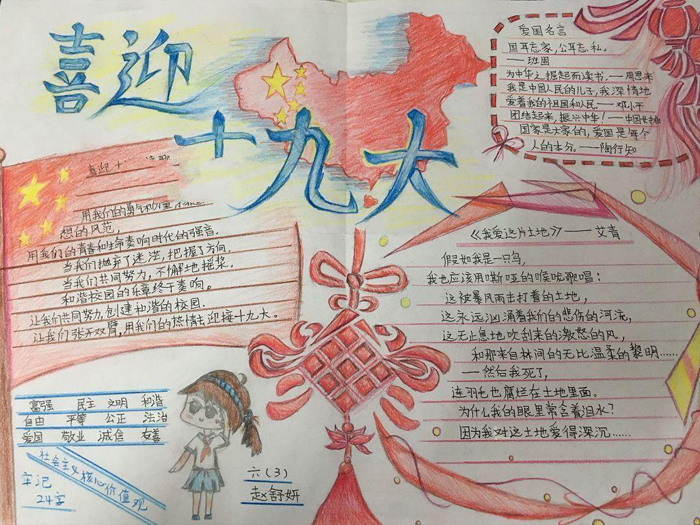 喜迎
十九大
爱国名言
国耳忘家，公耳忘私。
——班固
为中华之崛起而读书。——周恩来
我是中国人民的儿子，我深情地
爱着我的祖国和人民——邓小平
团结起来，振兴中华！——中国
国家是大家的，爱国是每个
人的本分。——陶行知
喜迎十
用我们的勇气和
想的风范，
用我们的青春和生命奏响时代的强音。
当我们抛弃了迷茫，把握了方向，
当我们共同努力，不懈地摇桨，
和谐校园的乐章终于奏响。
让我们共同努力，创建和谐的校园。
让我们张开双臂，用我们的热情去迎接十九大。
《我爱这片土地》——艾青
假如我是一只鸟，
我也应该用嘶哑的喉咙歌唱：
这被暴风雨击打着的土地，
这永远汹涌着我们的悲伤的河流，
这无止息地吹刮来的激怒的风，
和那来自林间的无比温柔的黎明……
——然后我死了，
连羽毛也腐烂在土地里面。
为什么我的眼里常含着泪水？
因为我对这土地爱得深沉……
富强 民主 文明 和谐
自由 平等 公正 法治
爱国 敬业 诚信 友善
社会主义核心价值观
牢记
24字
六（3）
赵舒妍